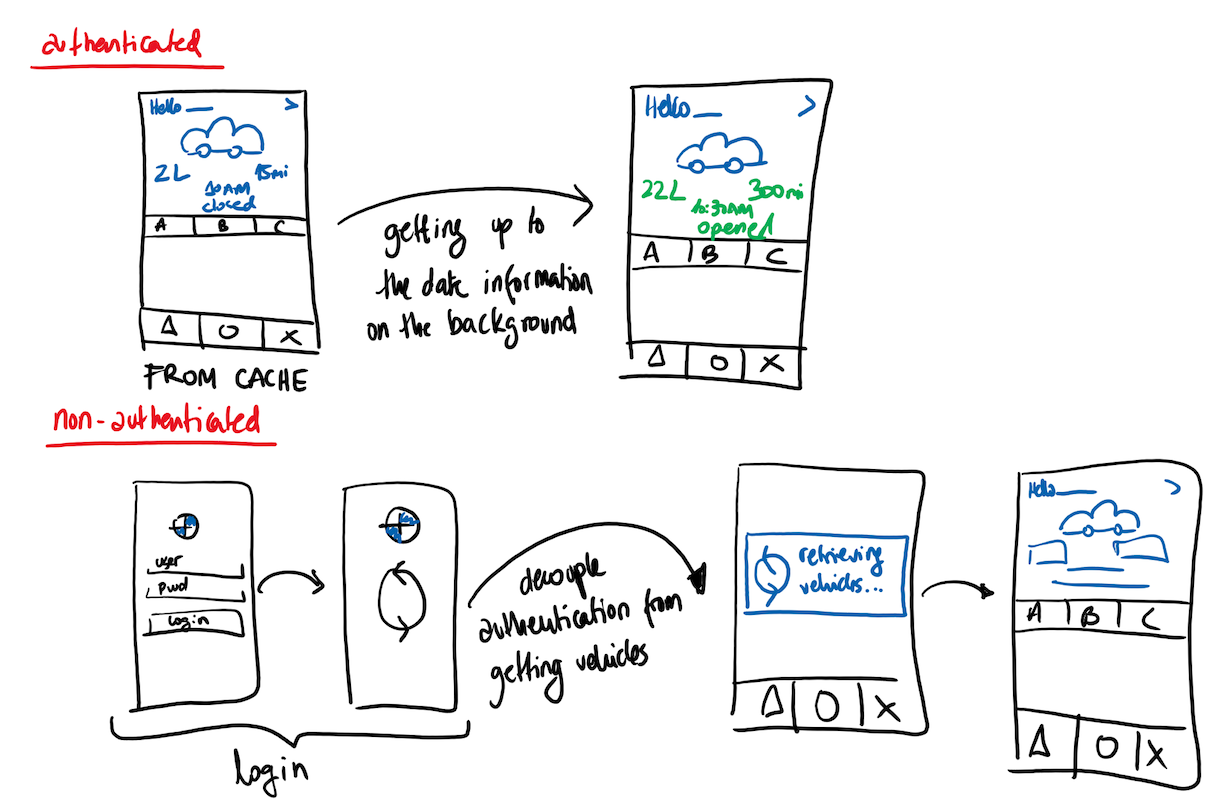 authenticated
Hello >
2L 15mi
10AM
closed
A B C
Δ O X
FROM CACHE
getting up to
the date information
on the background
Hello >
22L 300mi
10:30AM
opened
A B C
Δ O X
non-authenticated
user
pwd
login
login
decouple
authentication from
getting vehicles
retrieving
vehicles...
Δ O X
Hello >
A B C
Δ O X